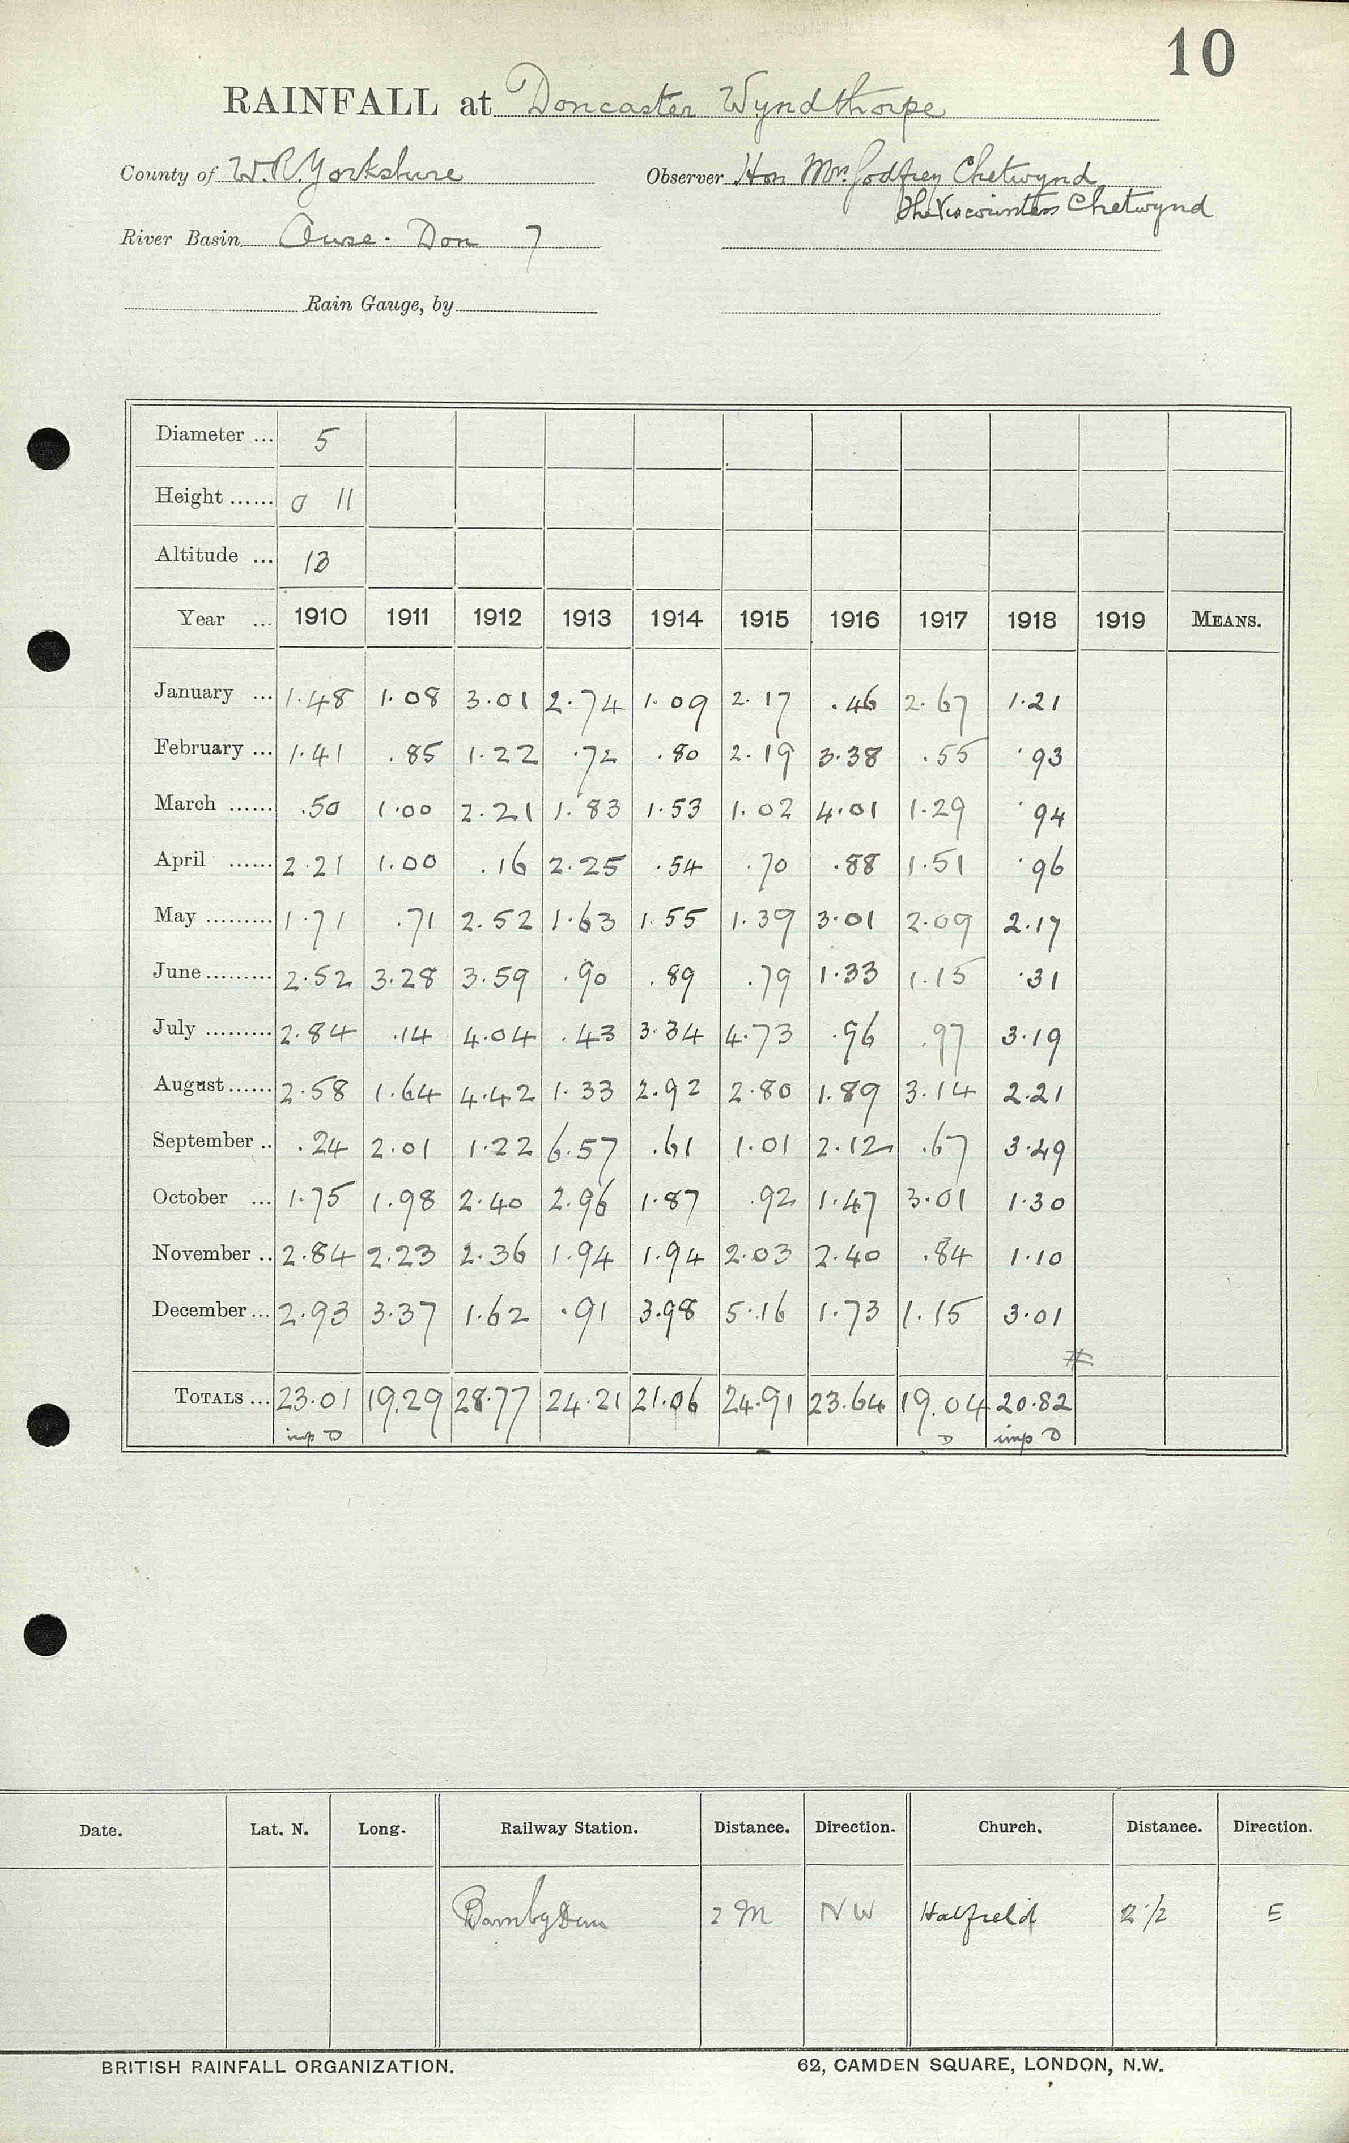 10
RAINFALL at Doncaster Wyndthorpe
County of W.R. Yorkshire Observer Hon Mrs. Godfrey Chetwynd
The Viscountess Chetwynd
River Basin Ouse. Don 7
Rain Gauge, by
Diameter ... 5
Height ...... 0 11
Altitude ... 13
Year ... 1910 1911 1912 1913 1914 1915 1916 1917 1918 1919 MEANS.
January ... 1.48 1.08 3.01 2.74 1.09 2.17 .46 2.67 1.21
February ... 1.41 .85 1.22 .72 .80 2.19 3.38 .55 .93
March ...... .50 1.00 2.21 1.83 1.53 1.02 4.01 1.29 .94
April ...... 2.21 1.00 .16 2.25 .54 .70 .88 1.51 .96
May ......... 1.71 .71 2.52 1.63 1.55 1.39 3.01 2.09 2.17
June ......... 2.52 3.28 3.59 .90 .89 .79 1.33 1.15 .31
July ......... 2.84 .14 4.04 .43 3.34 4.73 .96 .97 3.19
August ...... 2.58 1.64 4.42 1.33 2.92 2.80 1.89 3.14 2.21
September .. .24 2.01 1.22 6.57 .61 1.01 2.12 .67 3.49
October ... 1.75 1.98 2.40 2.96 1.87 .92 1.47 3.01 1.30
November .. 2.84 2.23 2.36 1.94 1.94 2.03 2.40 .84 1.10
December ... 2.93 3.37 1.62 .91 3.98 5.16 1.73 1.15 3.01
#
TOTALS ... 23.01 19.29 28.77 24.21 21.06 24.91 23.64 19.04 20.82
imp D D imp D
Date. Lat. N. Long. Railway Station. Distance. Direction. Church. Distance. Direction.
Barnby Dun 2 M NW Hatfield 2 1/2 E
BRITISH RAINFALL ORGANIZATION. 62, CAMDEN SQUARE, LONDON, N.W.